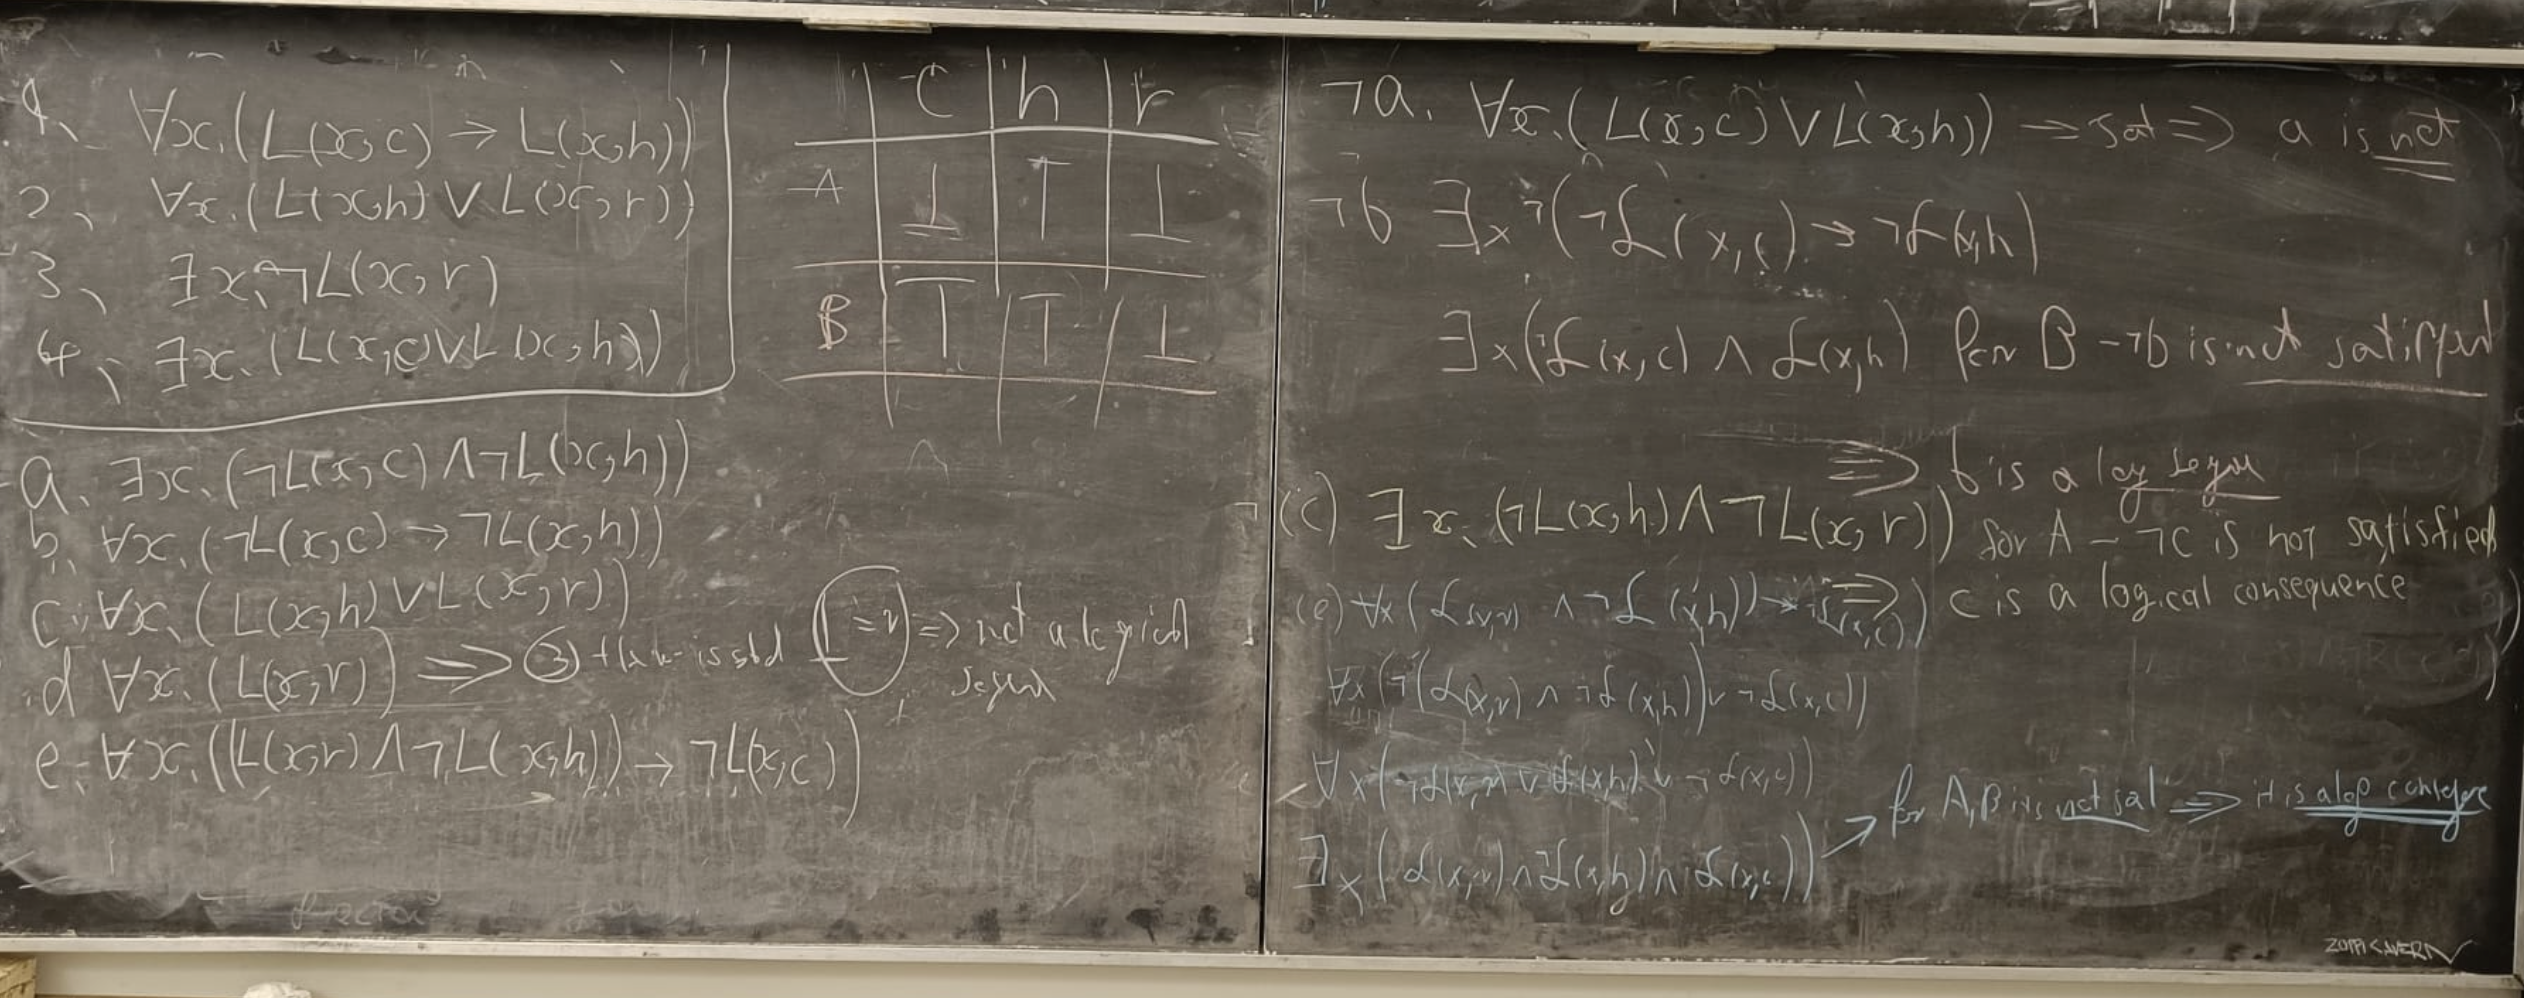 1、 ∀x.(L(x,c) → L(x,h))
2、 ∀x.(L(x,h) ∨ L(x,r))
3、 ∃x.¬L(x,r)
4、 ∃x.(L(x,c) ∨ L(x,h))
a. ∃x.(¬L(x,c) ∧ ¬L(x,h))
b. ∀x.(¬L(x,c) → ¬L(x,h))
c. ∀x.(L(x,h) ∨ L(x,r))
d ∀x.(L(x,r)) ⟹ ③ is => not a logical
e. ∀x.((L(x,r) ∧ ¬L(x,h)) → ¬L(x,c))
C h r
A ⊥ T ⊥
B T T ⊥
¬a. ∀x.(L(x,c) ∨ L(x,h)) → sat => a is not
¬b ∃x ¬(¬L(x,c) → ¬L(x,h)
∃x(¬L(x,c) ∧ L(x,h) for B – ¬b is not satisfied
⟹ b is a log
¬(c) ∃x.(¬L(x,h) ∧ ¬L(x,r)) for A – ¬c is not satisfied
⟹ c is a logical consequence
(e) ∀x(L(x,r) ∧ ¬L(x,h)) → ¬L(x,c))
∀x(¬(L(x,r) ∧ ¬L(x,h)) ∨ ¬L(x,c))
∀x(¬L(x,r) ∨ L(x,h) ∨ ¬L(x,c))
∃x(L(x,r) ∧ ¬L(x,h) ∧ L(x,c)) → for A,B it is not sat => it is a log